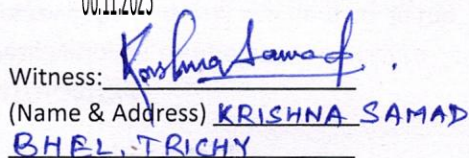 Witness: Krishna Samad.
(Name & Address) KRISHNA SAMAD
BHEL, TRICHY